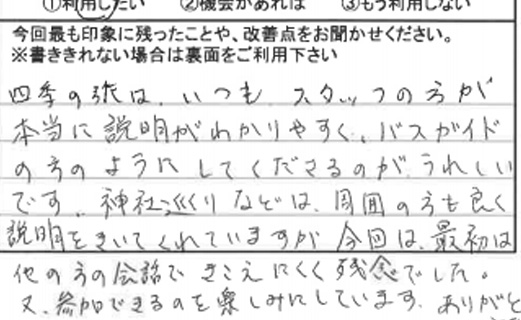 ①利用したい ②機会があれば ③もう利用しない
今回最も印象に残ったことや、改善点をお聞かせください。
※書ききれない場合は裏面をご利用下さい
四季の旅は、いつも、スタッフの方が
本当に説明がわかりやすく、バスガイド
の方のようにしてくださるのが、うれしい
です。神社巡りなどは、周囲の方も良く
説明をきいてくれていますが、今回は、最初は
他の方の会話できこえにくく残念でした。
又、参加できるのを楽しみにしています。ありがと